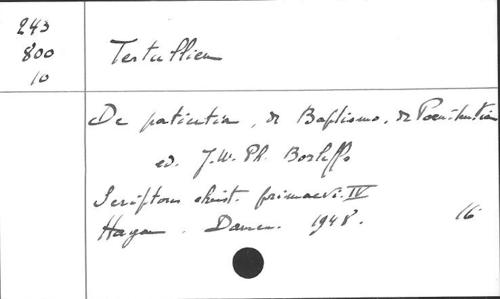 243
800
10
Tertullien
De patientia, de Baptismo, de Poenitentia
ed. J.W. Ph. Borleffs
Scriptores christ. primaevi. IV
Hagae. Daamen. 1948.
16